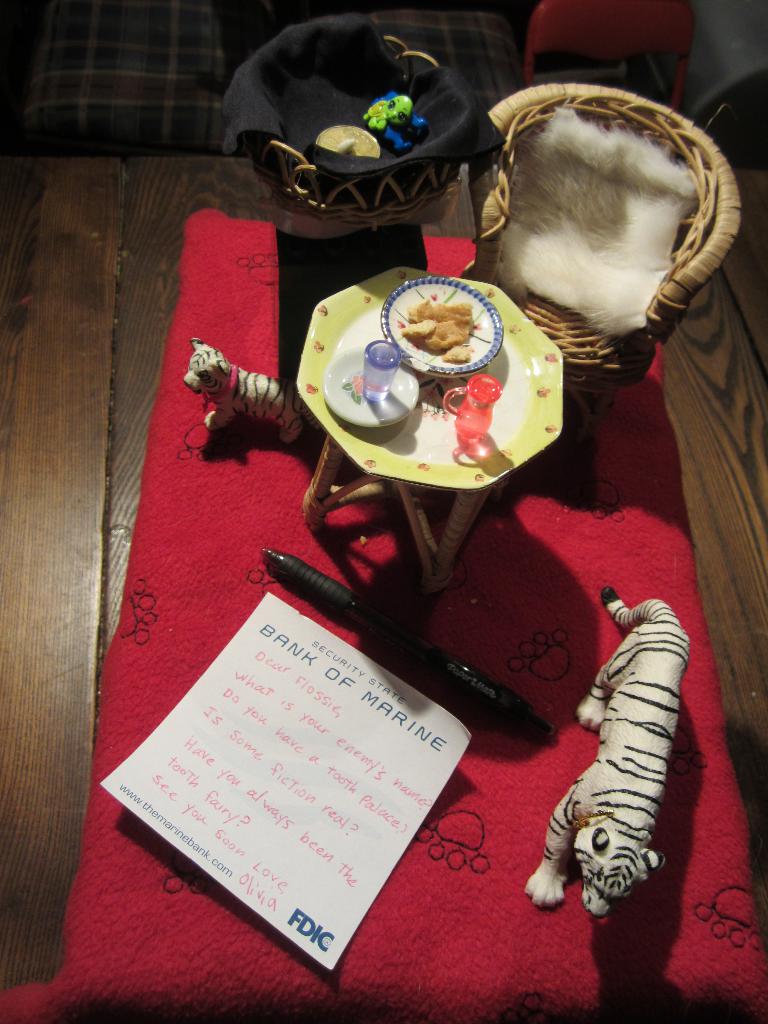 SECURITY STATE
BANK OF MARINE
Dear Flossie,
What is your enemy's name?
Do you have a tooth Palace?
Is some fiction real?
Have you always been the
tooth fairy?
See you soon Love,
Olivia
www.themarinebank.com
FDIC